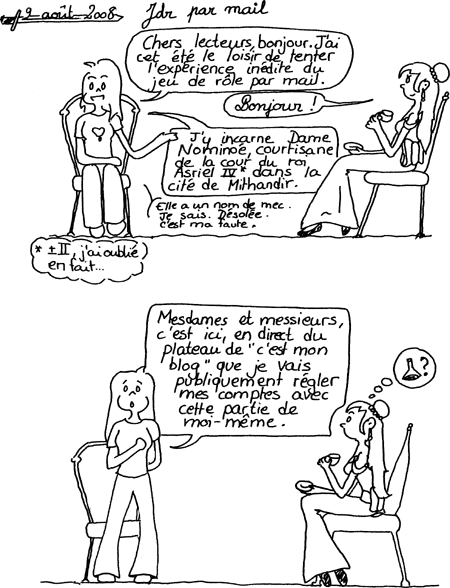 2 août 2008
Jdr par mail
Chers lecteurs, bonjour. J'ai
cet été le loisir de tenter
l'expérience inédite du
jeu de rôle par mail.
Bonjour !
J'y incarne Dame
Nominoë, courtisane
de la cour du roi
Asriel IV* dans la
cité de Mithandir.
Elle a un nom de mec.
Je sais. Désolée.
c'est ma faute.
* ± II, j'ai oublié
en fait...
Mesdames et messieurs,
c'est ici, en direct du
plateau de "c'est mon
blog" que je vais
publiquement régler
mes comptes avec
cette partie de
moi-même.
?